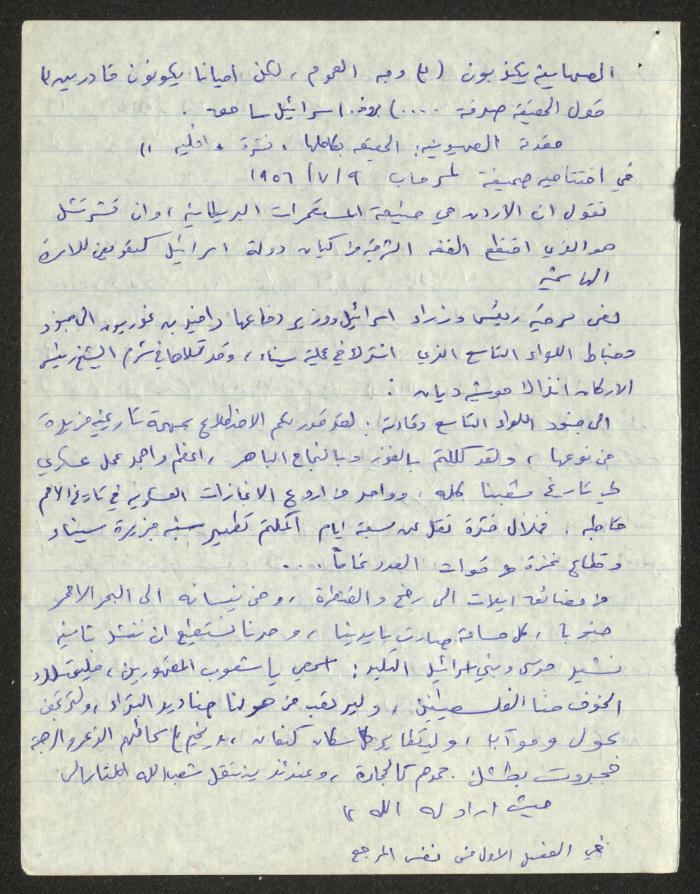 الصهاينة يكذبون (( على وجه العموم ، لكن احيانا يكونون قادرين على
قول الحقيقة صدفة .... )) بروف. اسرائيل شاحاق .
مقدمة الصهيونية: الحقيقة بكاملها ، نشرة
في افتتاحيه صحيفة لمرحاب ٩/٧/١٩٥٦
نقول ان الاردن هي صنيعة المستعمرات البريطانية ، وان تشرتشل
هو الذي اقتطع الضفه الشرقية من كيان دولة اسرائيل كتعويض للاسرة
الهاشمية
نص برقية رئيس وزراء اسرائيل ووزير دفاعها دافيد بن غوريون الى جنود
وضباط اللواء التاسع الذي اشترك في عملية سيناء ، وقد تلاها في شرم الشيخ رئيس
الاركان انذاك موشيه ديان :
الى جنود اللواء التاسع وقادته : لقد قدر لكم الاضطلاع بمهمة تاريخية فريدة
من نوعها ، ولقد كللتم بالفوز وبالنجاح الباهر ، اعظم وامجد عمل عسكري
في تاريخ شعبنا كله ، وواحد من اروع الانجازات العسكرية في تاريخ الامم
قاطبه . خلال فترة تقل عن سبعة ايام اكملتم تطهير شبه جزيرة سيناء
وقطاع غزة من قوات العدو تماماً ....
من مضائق ايلات الى رفح والقنطرة ، ومن نيسانه الى البحر الاحمر
جنوبا ، كل مساحة صارت بايدينا ، وعدنا نستطيع ان ننشد ثانية
نشيد موسى وبني اسرائيل التليد : اسمعي يا شعوب المقهورين ، فليتملك
الخوف منا الفلسطينيين ، وليرتعب من هولنا صناديد البتراء ، ولترتجف
بحول وموآب ، وليتطاير كل سكان كنعان ، وليخيم على سحائنهم الذعر والرهبة
فجبروت بطشك يجمدهم كالحجارة ، وعندئذ ينتقل شعب الله المختار الى
حيث اراد له الله ))
في الفصل الاول من نفس المرجع